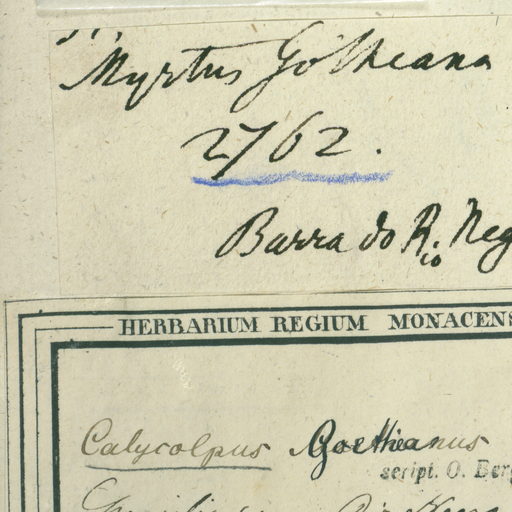 Myrtus Götheana
2762.
Barra do Rio Neg
HERBARIUM REGIUM MONACENS
Calycolpus Goetheanus
script. O. Berg